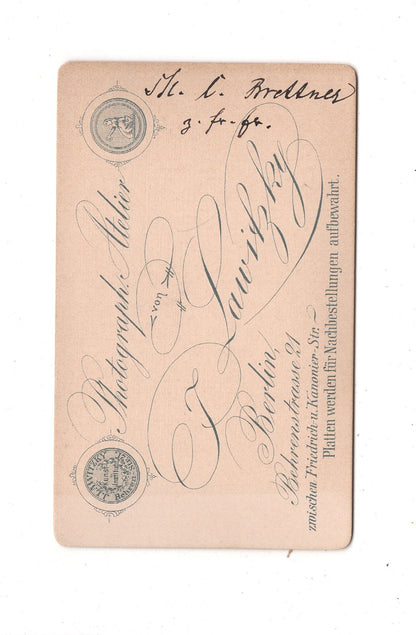 C. Brettner
z. fr. fr.
Photograph. Atelier
von
F. Lawitzky
Berlin,
Behrenstrasse 21
zwischen Friedrich u. Kanonier-Str.
Platten werden für Nachbestellungen aufbewahrt.